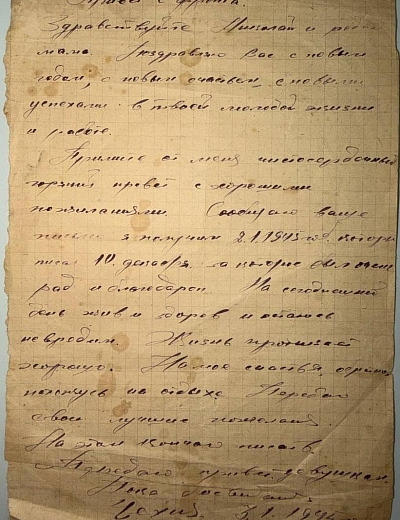 Здравствуйте Николай и
мама Поздравляю Вас с новым
годом, с новым счастьем, с новыми
успехами в твоей молодой жизни
и работе.
Примите от меня чистосердечный
горячий привет с хорошими
пожеланиями Сообщаю ваше
письмо я получил 2.1.1945 год, которое
писал 10. декабря. за которое был очень
рад и благодарен На сегодняшний
день жив и здоров и остаюсь
невредим. Жизнь протекает
хорошо. На мое счастья,
нахожусь на отдыхе Передаю
свои лучшие пожелания.
На этом кончаю писать
Передаю привет девушкам.
Пока
3.1.